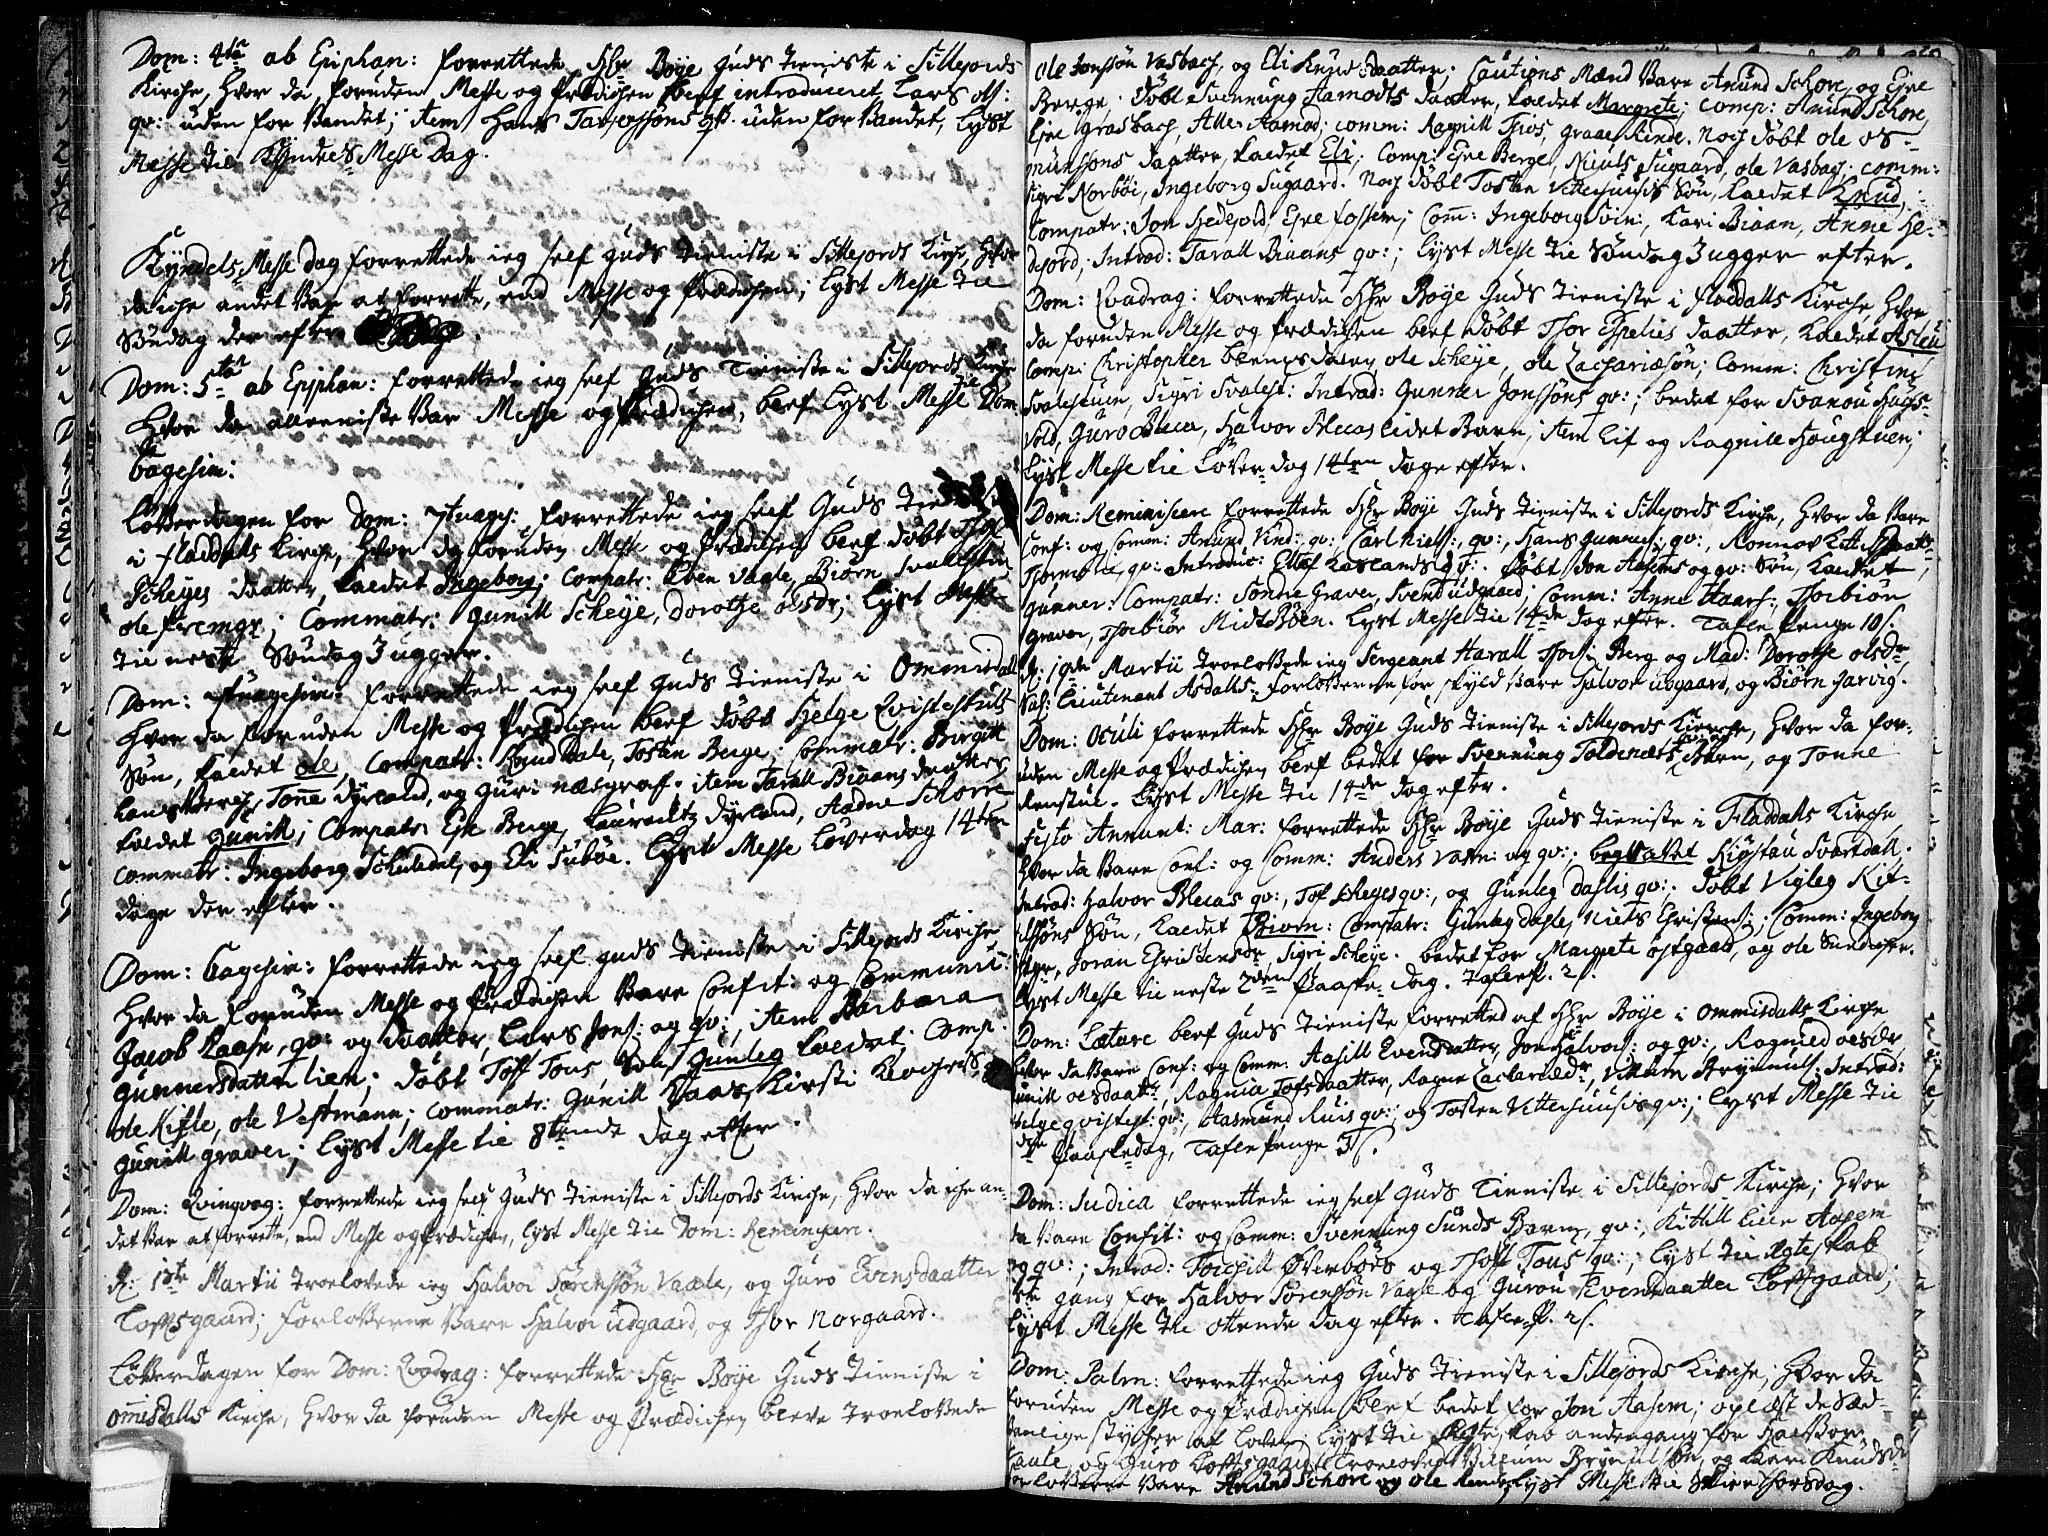 Dom: 4ta ab Epiphan: forrettede Hr Böye Guds Tieniste i Sillejords
Kirche, hvor da foruden Messe og Prædichen blef introduceret Lars Ols:
qv: uden for Bandet; item Hans Tarjersöns qv: uden for Bandet, lyst
Messe til Kyndels Messe Dag.
Kyndels Messe dag forrettede ieg self Guds Tieniste i Sillejords Kirche, hvor
da iche andet var at forrette, end Messe og Prædichen; lyst Messe til
Söndag der efter
Dom: 5ta ab Epiphan: forrettede ieg self Guds Tieniste i Sillejords Kirche
hvor da alleeniste var Messe og Prædichen, blef lyst Messe til Dom
6agesim:
Löverdagen for Dom: 7tuages: forrettede ieg self Guds Tieniste
i Fladdals Kirche, hvor da foruden Messe og Prædichen blef döbt Thor
Scheyes daatter, kaldet Ingeborg; Compatr: Eben Vaale, Biörn Svallestu
ole; Commatr: Gunill Scheye, Dorothe olsdr; lyst Messe
til neste Söndag 3 ugger.
Dom: 7tuagesim: forrettede ieg self Guds Tieniste i Ommisdall
hvor da foruden Messe og Prædichen blef döbt Helge Qvistestuls
Sön, kaldet ole, Compatr: Knud Dale, Tosten Berge; Commatr: Birgitt
Lanskberg, Tonne Dyrland, og Guri Næsgraf. item Tarall Biaans daatter
kaldet Gunill; Compatr: Eje Berge, Lauraatz Dyrland, Aadne Schorre
Commatr: Ingeborg Schedal, og Eli Suböe. Lyst Messe Löverdag 14ten
dage der efter.
Dom: 6agesim: forrettede ieg self Guds Tieniste i Sillejords Kirche
hvor da foruden Messe og Prædichen vare Confit: og Communi:
Jacob Kaasa, qv: og daatter, Lars Jons: og qv:, item Barbara
Gunnersdatter Lien; döbt Toff Tous, Sön Gunleg kaldet; Comp:
ole Kisle, ole Vestmann; Commatr: Gunill Vaas, Kirsti
Gunill Graver; lyst Messe til 8tende dag efter.
Dom: Qvinqvag: forrettede ieg self Guds Tieniste i Sillejords Kirche, hvor da iche an-
det var at forrette, end Messe og Prædichen, lyst Messe til Dom: Reminiscere.
d: 1ste Martii troelovede ieg Halvor Sörensön Vaale, og Guro Evensdaatter
Loftsgaard; forloverne vare Halvor Udgaard, og Thor Norgaard.
Löverdagen for Dom: Qvadrag: forrettede Hr Böye Guds Tieniste i
Ommisdalls Kirche, hvor da foruden Messe og Prædichen bleve troelovede
Ole Jonssön Vasbach, og Eli Knudsdaatter; Cautions Mænd vare Anund Schore, og Ejve
Berge. Döbt Svennung Aamodts daatter, kaldet Margrete; comp: Anund Schore,
Ejve Grasbach, Atle Aamod; comm: Ragnill Thios, Graae Kinde. Noch döbt ole Os-
mundsöns daatter, kaldet Eli; Comp: Ejve Berge, Niels Sugaard, ole Vasbach; comm:
Sigri Norböe, Ingeborg Sugaard. Noch döbt Tosten Vitterhuusis Sön, kaldet Knud;
Compatr: Jon Hedejord, Ejve Fossem; Com: Ingeborg Svin:, Kari Biaan, Anne He-
dejord; Introd: Tarall Biaans qv:; lyst Messe til Söndag 3 ugger efter.
Dom: Qvadrag: forrettede Hr Böye Guds Tieniste i Fladdalls Kirche, hvor
da foruden Messe og Prædichen blef döbt Thor Espelies daatter, kaldet Asleu
Comp: Christopher Bennesdalen, ole Scheye, ole Zachariæsön; Comm: Christine
Svalestuen, Sigri Svalest: Introd: Gunner Jonssöns qv:; bedet for Svanou Hugs-
vold, Guro Blecca, Halvor Blecas lidet Barn; item Lif og Ragnile Haugstuen;
lyst Messe til Löverdag 14ten dage efter.
Dom: Reminiscere forrettede Hr Böye Guds Tieniste i Sillejords Kirche, hvor da vare
Conf: og Comm: Anund Vind: qv:, Carl Niels:, qv:, Hans Gunners: qv:, Ronnov
qv: Introduc: Ellef Kaslands qv:. Döbt Jon Aasems og qv: Sön, kaldet
Gunner: Compatr: Sondre Graver, Svend Udgaard; Comm: Anne Haars:, Thorbiör
Graver, Thorbiör Midtböen. Lyst Messe til 14de dag efter. Tafle Penge 10 s.
d: 19de Martii troelovede ieg Sergeant Harall Berg og Mad: Dorothe olsdr
Sal: Lieutenant Asdalls. forloverne for skyld vare Halvor Udgaard, og Biörn Jarvig.
Dom: Oculi forrettede Hr Böye Guds Tieniste i Sillejords Kirche, hvor da for-
uden Messe og Prædichen blef bedet for Svennung Toldenæss Barn, og Tonne
Renstul. Lyst Messe til 14de dag efter.
Festo Annunt: Mar: forrettede Hr Böye Guds Tieniste i Fladdalls Kirche,
hvor da vare Conf: og Comm: Anders Vatn: og qv:; begravet Kiöstau Svartdall.
Introd: Halvor Blecas qv:, Tof Scheyes qv:, og Gunleg Daslis qv:. Döbt Vigleg Kit-
tilsöns Sön, kaldet Biorn: Compatr: Gunleg Dagle, Niels Christens:; Comm: Ingeborg
Joran Christensdr, Sigri Scheye. bedet for Margrete Östgaard, og ole
Lyst Messe til neste 2den Paaske dag. Taflep. 2 s.
Dom: Lætare blef Guds Tieniste forretted af Hr Böye i Ommisdalls Kirche
hvor da vare Conf: og Comm: Aasill Evensdatter, Jon Halvors: og qv:, Ragnild olsdr,
Gunill olsdaatr, Ragnila Tofsdaatter, Ragne Zachariædr, Villum Brynnuls: Introd:
Helge Qvistest: qv:, Aasmund Ruis qv:, og Tosten Vitterhuusis qv:; lyst Messe til
Paaskedag, Tafle Penge 3 s.
Dom: Judica forrettede ieg self Guds Tieniste i Sillejords Kirche; hvor
da vare Confit: og Comm: Svennung Sunds Barn, qv:, Kittill Lien Aasem
og qv:; Introd: Torchill Överböes og Thoff Tous qv:; lyst til Ægteskab
1ste gang for Halvor Sörensön Vaale og Gurou Evensdaatter Loftsgaard;
lyst Messe til ottende dag efter. Tafle P. 2 s.
Dom: Palm: forrettede ieg Guds Tieniste i Sillejords Kirche; hvor da
foruden Messe og Prædichen blef bedet for Jon Aasem; oplæst de Sæd-
vanlige stycher af loven; lyst til Ægteskab anden gang for Halvor
Vaale, og Guro Loftsgaard; troelovet Villum Brynnulsön, og Kari Knudsdr
forloverne vare Anund Schore og ole Kinde. lyst Messe til Skiertorsdag.